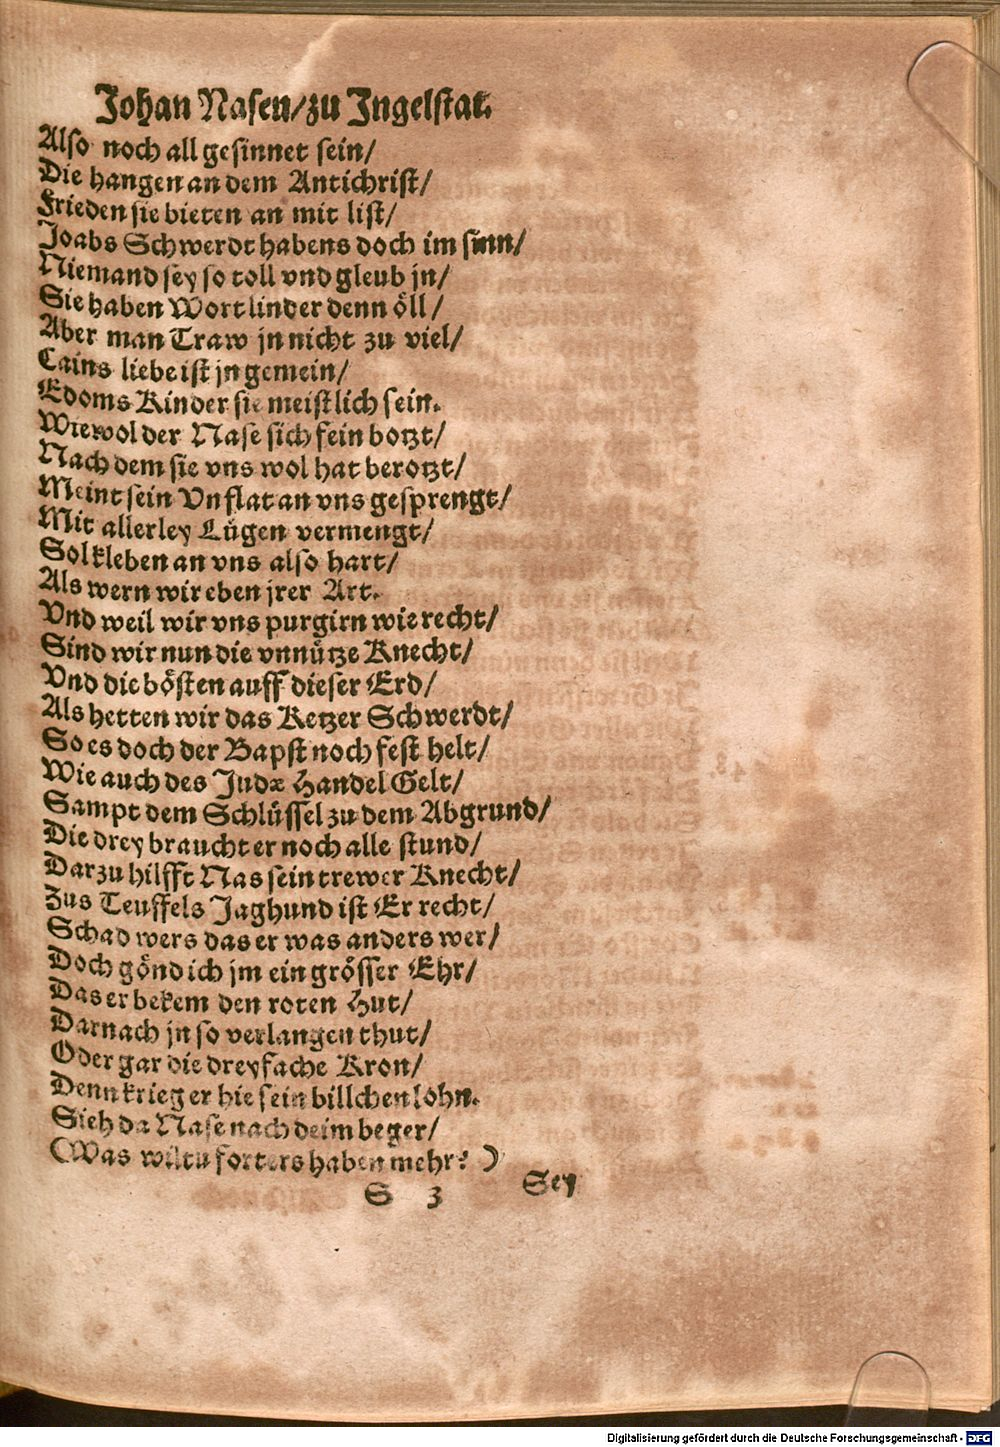 Johan Nasen/zu Ingelstat.
Also noch all gesinnet sein/
Die hangen an dem Antichrist/
Frieden sie bieten an mit list/
Joabs Schwerdt habens doch im sinn/
Niemand sey so toll vnd gleub jn/
Sie haben Wort linder denn öll/
Aber man Traw jn nicht zu viel/
Cains liebe ist jn gemein/
Edoms Kinder sie meistlich sein.
Wiewol der Nase sich fein botzt/
Nach dem sie vns wol hat berotzt/
Meint sein Vnflat an vns gesprengt/
Mit allerley Lügen vermengt/
Sol kleben an vns also hart/
Als wern wir eben jrer Art.
Vnd weil wir vns purgirn wie recht/
Sind wir nun die vnnütze Knecht/
Vnd die bösten auff dieser Erd/
Als hetten wir das Ketzer Schwerdt/
So es doch der Bapst noch fest helt/
Wie auch des Judæ Handel Gelt/
Sampt dem Schlüssel zu dem Abgrund/
Die drey braucht er noch alle stund/
Darzu hilfft Nas sein trewer Knecht/
Zus Teuffels Jaghund ist Er recht/
Schad wers das er was anders wer/
Doch gönd ich jm ein grösser Ehr/
Das er bekem den roten Hut/
Darnach jn so verlangen thut/
Oder gar die dreyfache Kron/
Denn krieg er hie sein billchen lohn.
Sieh da Nase nach deim beger/
(Was wiltu forters haben mehr? )
S 3 Sey
Digitalisierung gefördert durch die Deutsche Forschungsgemeinschaft - DFG